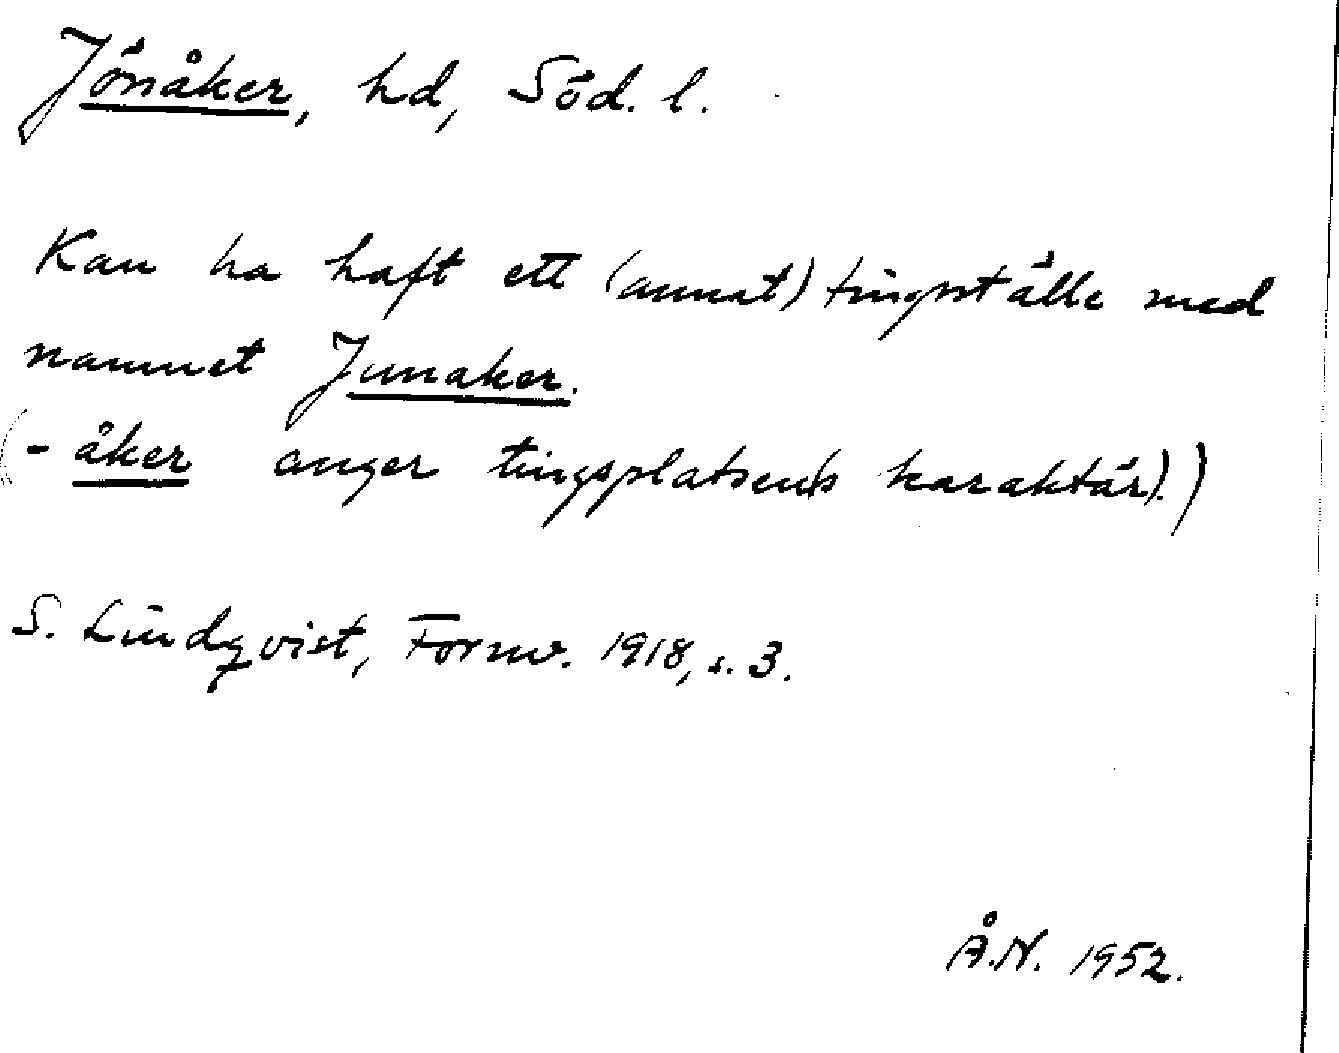 Jönåker, hd, Söd. l.
Kan ha haft ett (annat) tingställe med
namnet Junaker.
(- åker anger tingsplatsens karaktär).)
S. Lindqvist, Fornv. 1918, s. 3.
Å.N. 1952.